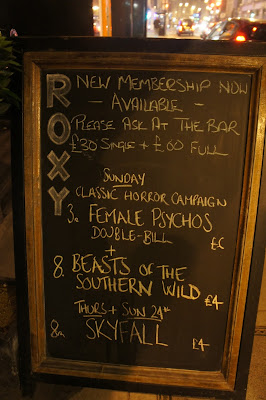 ROXY
NEW MEMBERSHIP NOW
- AVAILABLE -
PLEASE ASK AT THE BAR
£30 SINGLE + £60 FULL
SUNDAY
CLASSIC HORROR CAMPAIGN
3. FEMALE PSYCHOS
DOUBLE-BILL
+
8. BEASTS OF THE
SOUTHERN WILD £4
THURS + SUN 24th
SKYFALL £4